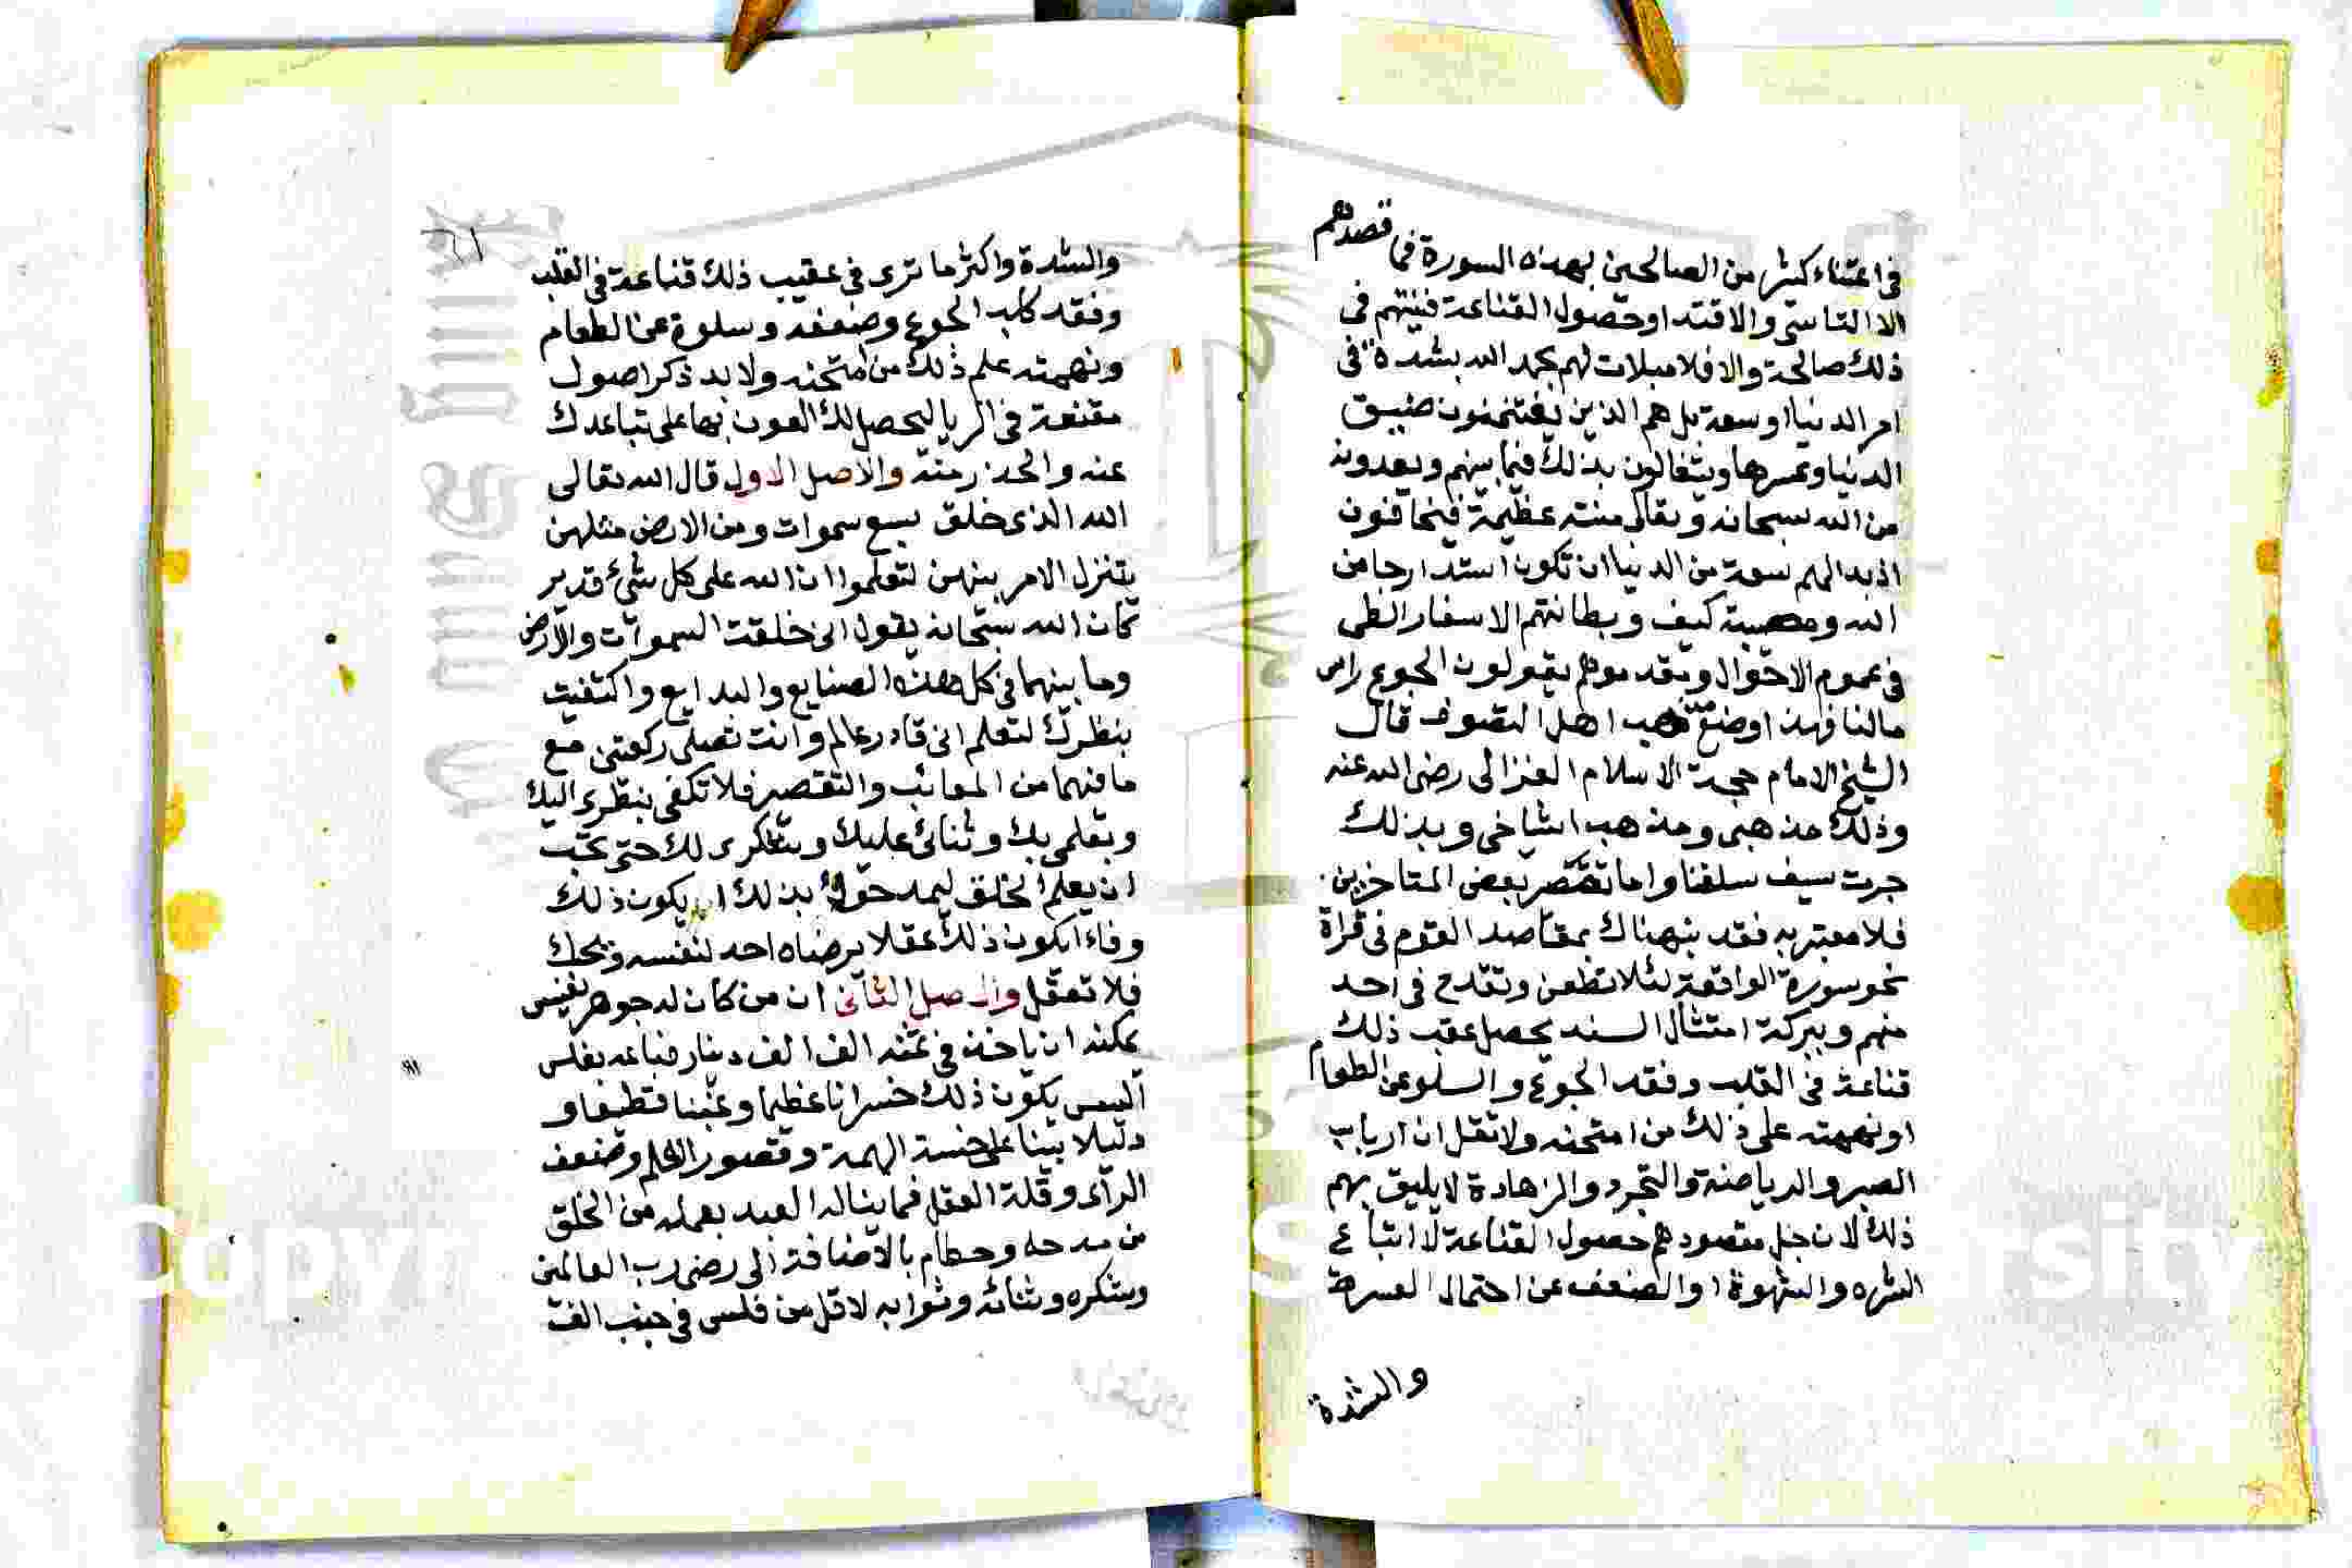 في اعتناء كثير من الصالحين بهذه السورة فما قصدهم
الا التاسي والاقتد اوحصول القناعة فنيتهم في
ذلك صالحة والا فلا مبلات لهم بحمد الله بشدة في
امر الدنيا او سعة بل هم الذين يغتنمون ضيق
الدنيا وعسرها ويتغالون بذلك فيما بينهم ويعدونه
من الله سبحانه وتعالى منته عظيمة فيخافون
اذ بدالهم سعة من الدنيا ان تكون استدارجا من
الله ومصيبة كيف وبطانتهم الاسفار الطي
في عموم الاحوال ومقدموهم يقولون الجوع راس
مالنا فهذا وضع مذهب اهل التصوف قال
الشيخ الامام حجة الاسلام الغزالى رضي الله عنه
وذلك مذهبى ومذهب اشياخي وبذلك
جرت سيف سلفنا واما تقصر بعض المتاخرين
فلا معتبر به فقد نبهناك بمقاصد القوم في قراة
نحو سورة الواقعة لئلا تطعن وتقدح في احد
منهم وببركة امتثال السنه يحصل عقب ذلك
قناعة في القلب وفقد الجوع والسلو عن الطعام
او نهمته على ذلك من امتحنه ولا تقل ان ارباب
الصبر والرياضة والتجرد والزهادة لا يليق بهم
ذلك لان جل مقصودهم حصول القناعة لا اتباع
الشره والشهوة او الضعف عن احتمال العسرة
والشدة
والشدة واكثر ما ترى في عقيب ذلك قناعة في القلب
وفقد كلب الجوع وضعفه وسلوة عن الطعام
ونهمته علم ذلك من امتحنه ولا بد ذكر اصول
مقنعة في الريا ليحصل لك العون بها على تباعدك
عنه والحذر منه والاصل الاول قال الله تعالى
الله الذى خلق سبع سموات ومن الارض مثلهن
يتنزل الامر بينهن لتعلموا ان الله على كل شئ قدير
كان الله سبحانه يقول انى خلقت السموات والارض
وما بينهما في كل هذه الصنايع والبدايع واكتفيت
بنظرك لتعلم انى قادر عالم وانت تصلى ركعتين مع
ما فيهما من المعائب والتقصير فلا تكفى بنظرى اليك
وبعلمى بك وثنائى عليك وبشكرى لك حتى تحب
ان يعلم الخلق ليمدحوك بذلك ايكون ذلك
وفاء ايكون ذلك عقلا يرضاه احد لنفسه ويحك
فلا تعقل والاصل الثاني ان من كان له جوهر نفيس
يمكنه ان ياخذ في ثمنه الف الف دينار فباعه بفلس
اليس يكون ذلك خسرانا عظيما وغبنا فظيعا و
دليلا بينا على خسة الهمة وقصور العلم وضعف
الراى وقلة العقل فما يناله العبد بعمله من الخلق
من مدحه وحطام بالاضافة الى رضى رب العالمين
وشكره وثنائه وثوابه لاقل من فلس في جنب الف